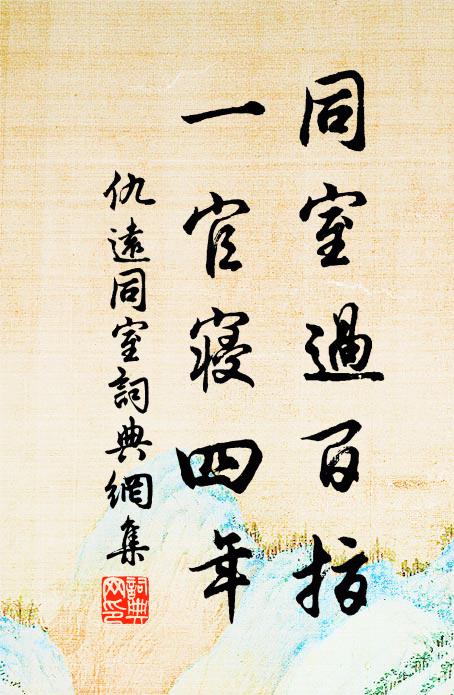 同室過百指
一官寢四年
仇遠同室詞典網集
詞典